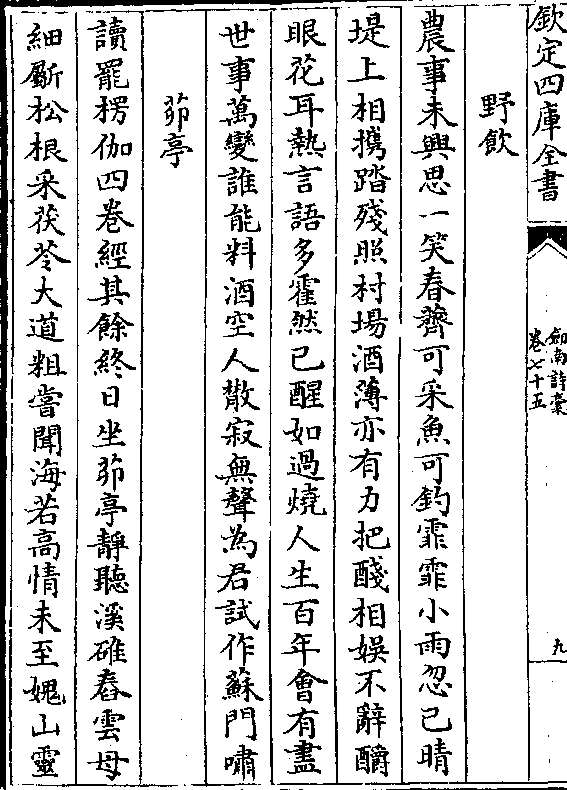 欽定四庫全書
劔南詩稾
卷七十五
九
野飲
農事未興思一笑春薺可采魚可釣霏霏小雨忽已晴
堤上相攜踏殘照村場酒薄亦有力把醆相娛不辭釂
眼花耳熱言語多霍然已醒如過燒人生百年會有盡
世事萬變誰能料酒空人散寂無聲為君試作蘇門嘯
茆亭
讀罷楞伽四卷經其餘終日坐茆亭靜聽溪碓舂雲母
細斸松根采茯苓大道粗嘗聞海若高情未至媿山靈